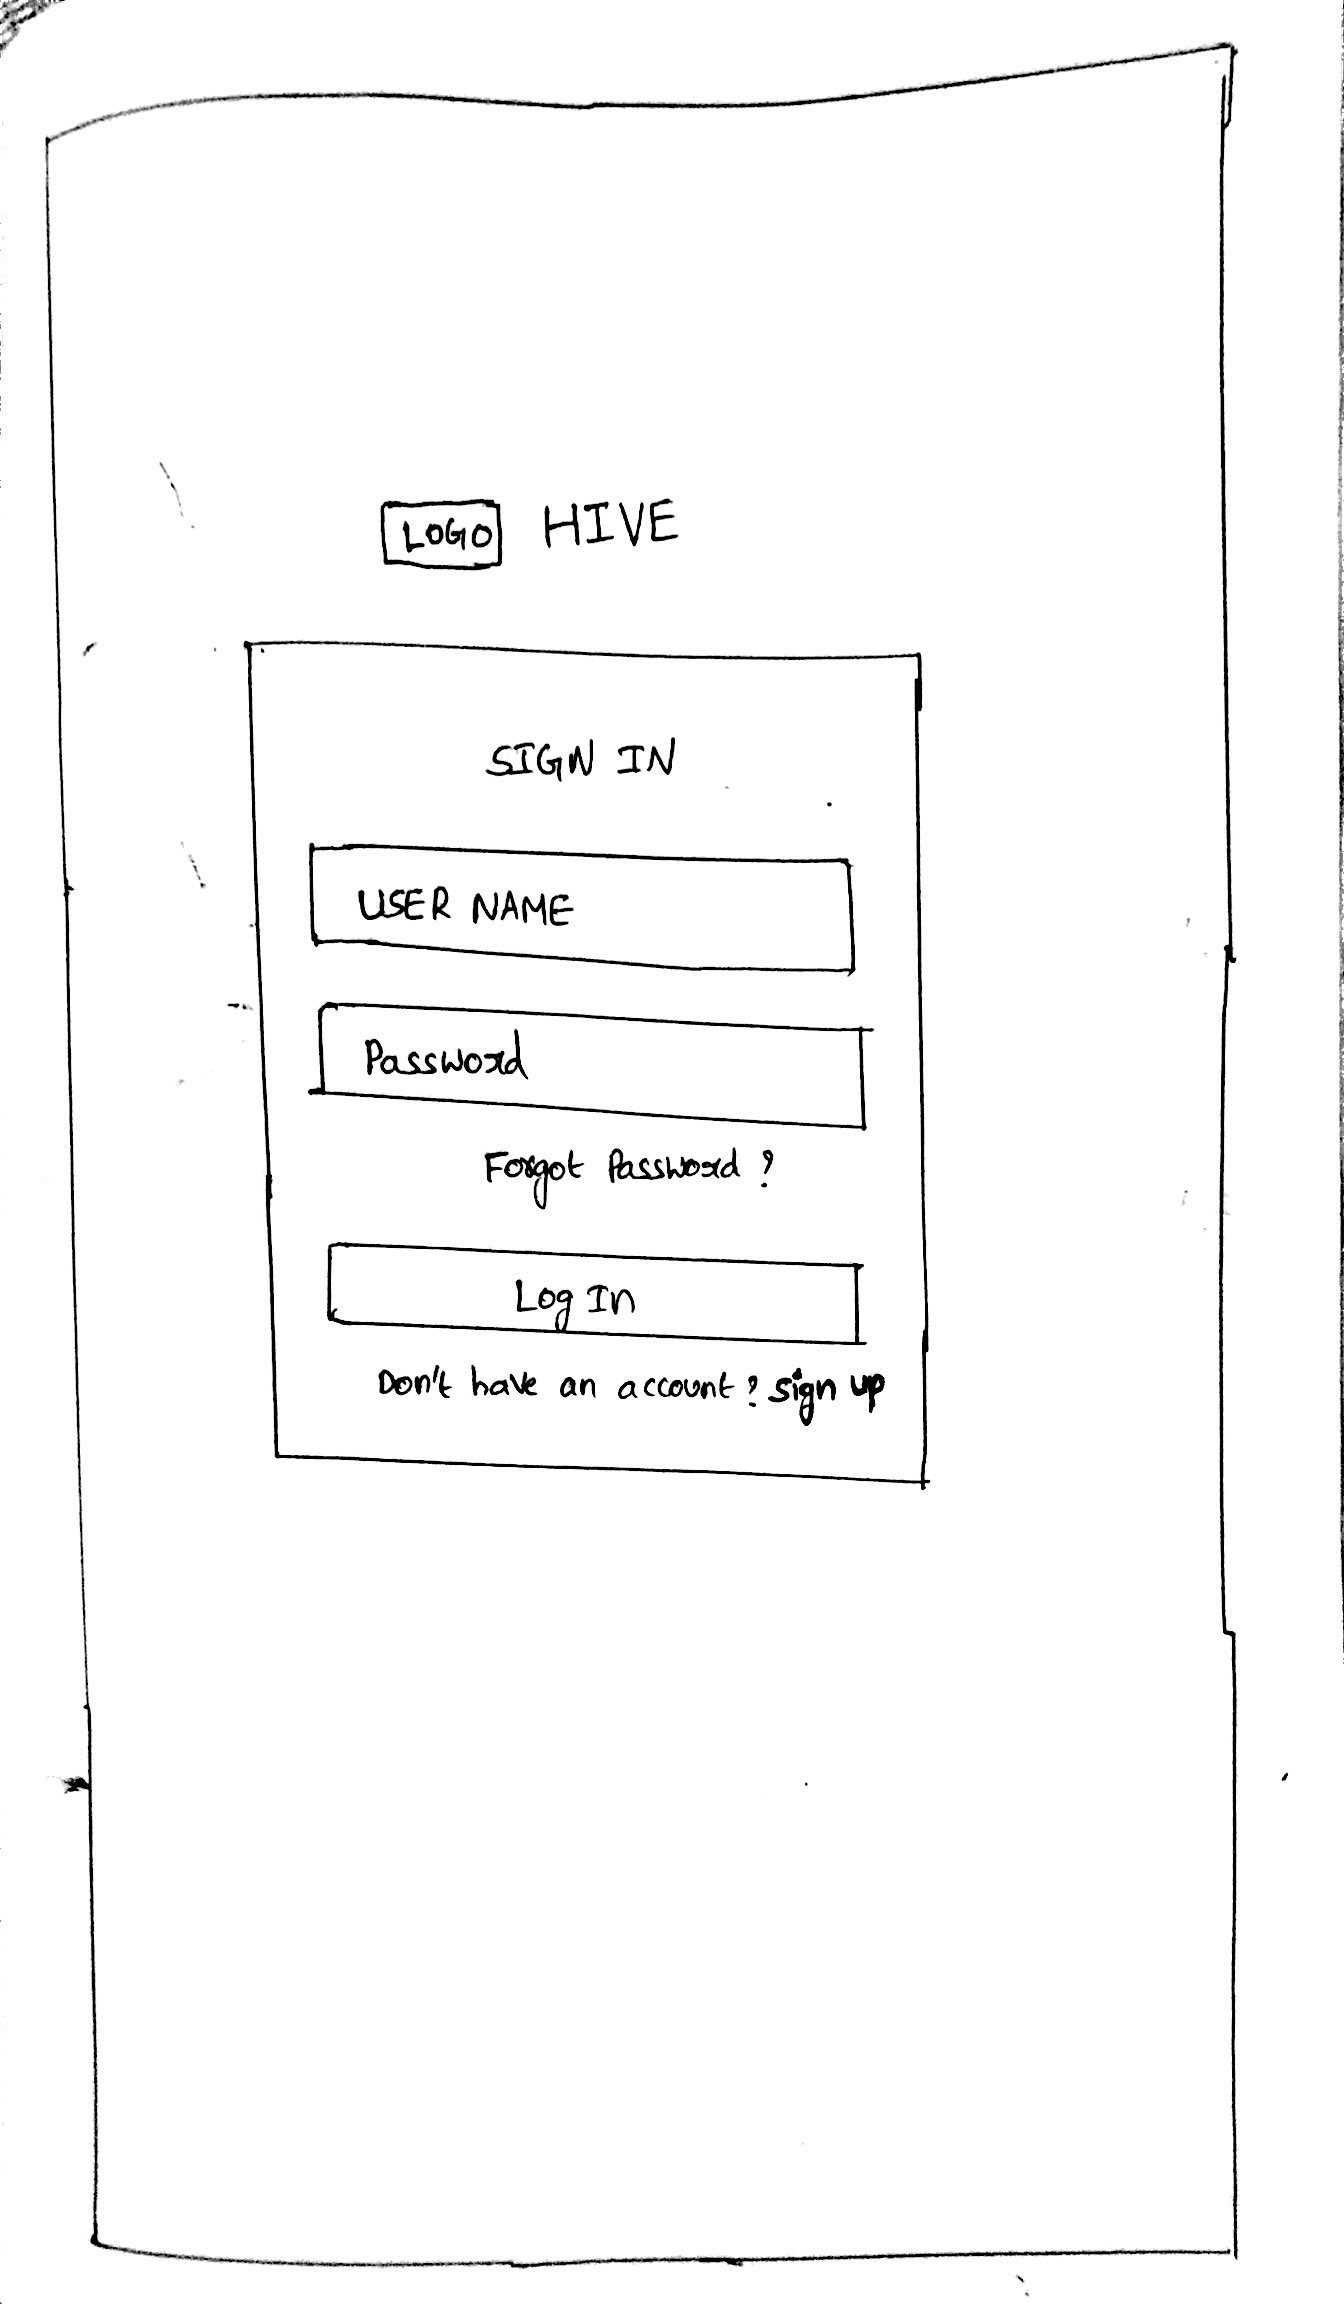 LOGO HIVE
SIGN IN
USER NAME
Password
Forgot Password ?
Log In
Don't have an account? sign up